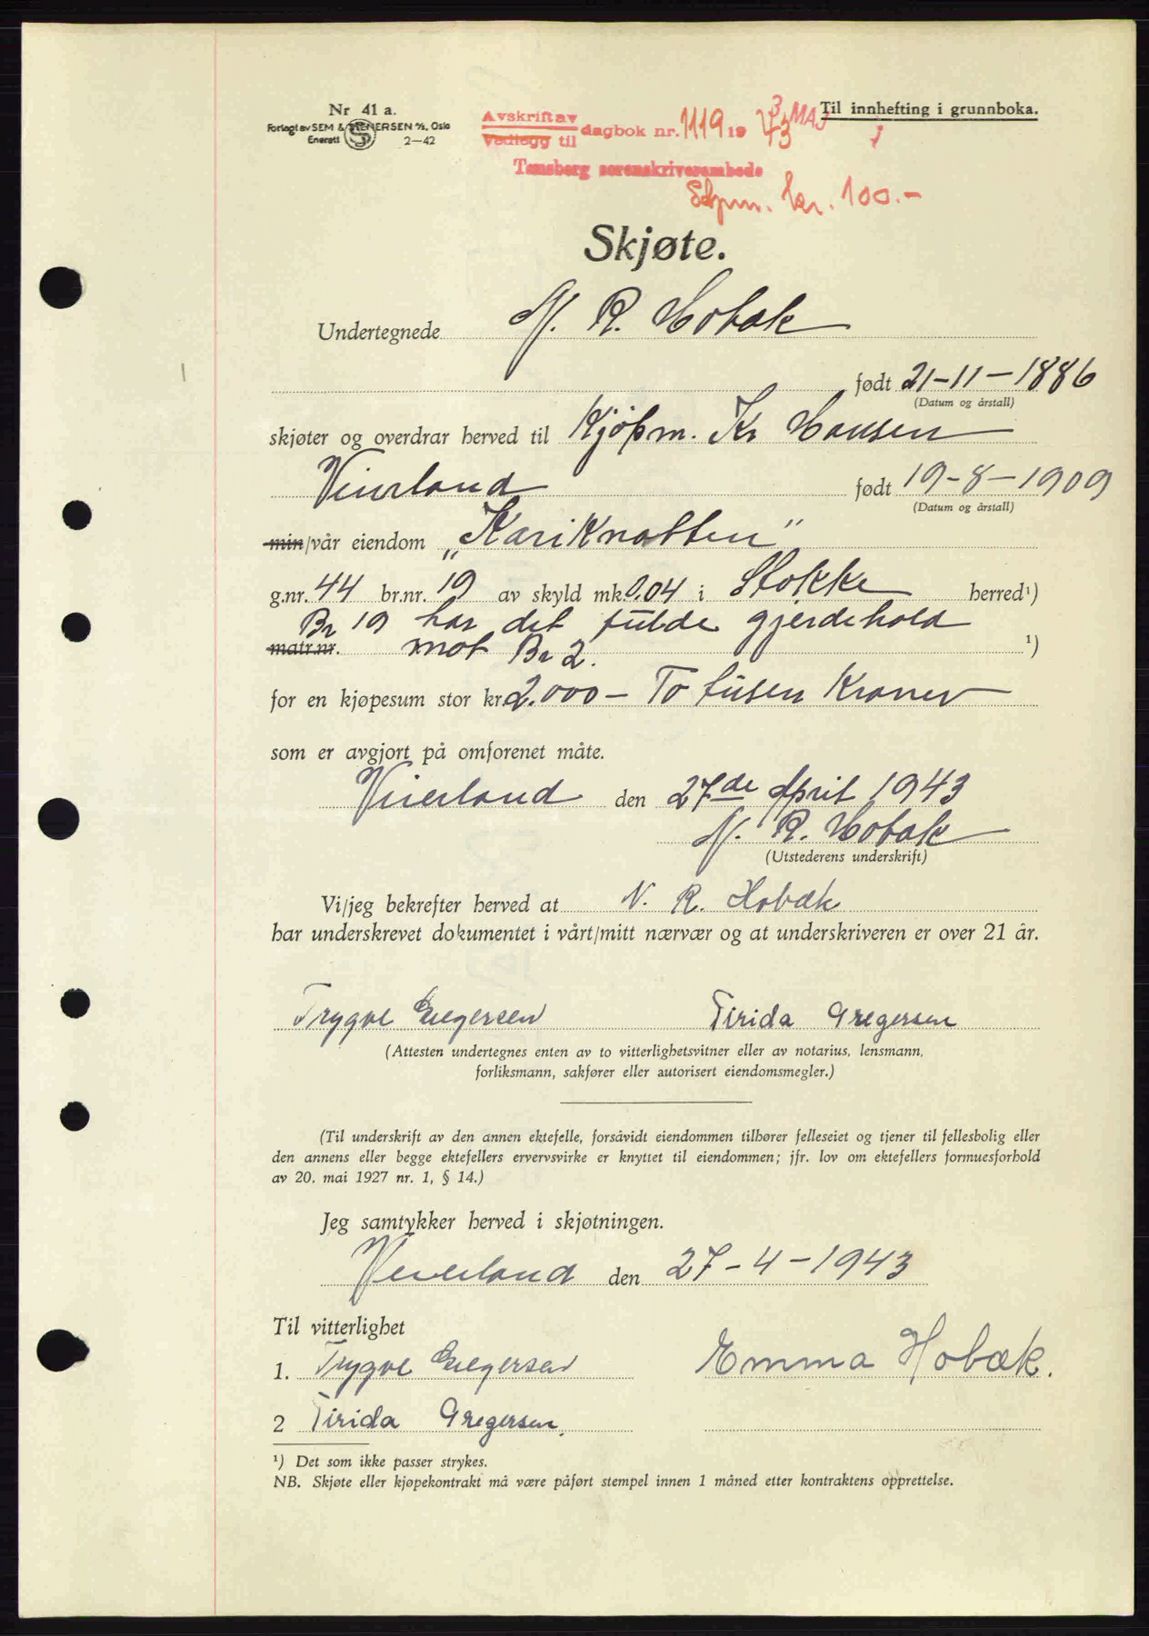 Nr 41 a.
Forlagt av SEM & STENERSEN A/S, Oslo
Enerett S 2—42
Avskrift av
Vedlegg til dagbok nr. 1119 19 43 3 MAJ
Tønsberg sorenskriverembede
Til innhefting i grunnboka.
Stpm. kr. 100.-
Skjøte.
Undertegnede N. R. Hobæk
født 21-11-1886
(Datum og årstall)
skjøter og overdrar herved til Kjöpm. Kr Hansen
Veierland født 19-8-1909
(Datum og årstall)
min/vår eiendom „KariKnatten"
g.nr. 44 br.nr. 19 av skyld mk 0.04 i Stokke herred¹)
Br 19 har det fulde gjerdehold
matr.nr. mot Br 2. ¹)
for en kjøpesum stor kr 2.000 — To tusen Kroner
som er avgjort på omforenet måte.
Veierland den 27de April 1943
N. R. Hobæk
(Utstederens underskrift)
Vi/jeg bekrefter herved at N. R. Hobæk
har underskrevet dokumentet i vårt/mitt nærvær og at underskriveren er over 21 år.
Trygve Gregersen Tirida Gregersen
(Attesten undertegnes enten av to vitterlighetsvitner eller av notarius, lensmann,
forliksmann, sakfører eller autorisert eiendomsmegler.)
(Til underskrift av den annen ektefelle, forsåvidt eiendommen tilhører felleseiet og tjener til fellesbolig eller
den annens eller begge ektefellers ervervsvirke er knyttet til eiendommen; jfr. lov om ektefellers formuesforhold
av 20. mai 1927 nr. 1, § 14.)
Jeg samtykker herved i skjøtningen.
Veierland den 27-4-1943
Til vitterlighet
1. Trygve Gregersen Emma Hobæk.
2 Tirida Gregersen.
¹) Det som ikke passer strykes.
NB. Skjøte eller kjøpekontrakt må være påført stempel innen 1 måned etter kontraktens opprettelse.